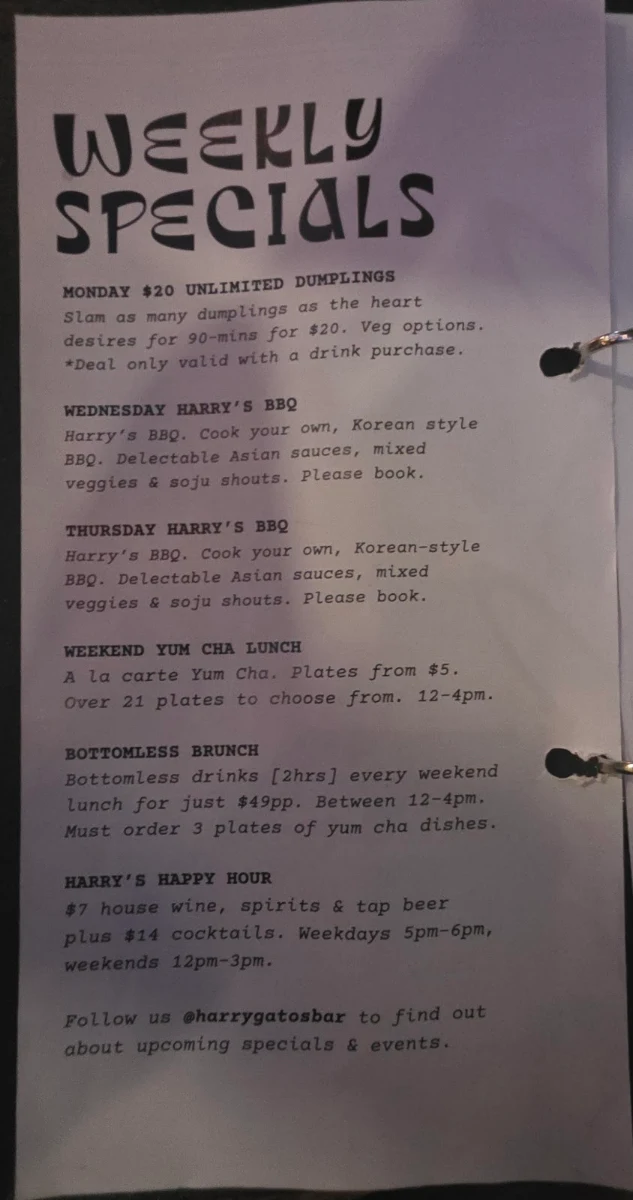 WEEKLY
SPECIALS
MONDAY $20 UNLIMITED DUMPLINGS
Slam as many dumplings as the heart
desires for 90-mins for $20. Veg options.
*Deal only valid with a drink purchase.
WEDNESDAY HARRY'S BBQ
Harry's BBQ. Cook your own, Korean style
BBQ. Delectable Asian sauces, mixed
veggies & soju shouts. Please book.
THURSDAY HARRY'S BBQ
Harry's BBQ. Cook your own, Korean-style
BBQ. Delectable Asian sauces, mixed
veggies & soju shouts. Please book.
WEEKEND YUM CHA LUNCH
A la carte Yum Cha. Plates from $5.
Over 21 plates to choose from. 12-4pm.
BOTTOMLESS BRUNCH
Bottomless drinks [2hrs] every weekend
lunch for just $49pp. Between 12-4pm.
Must order 3 plates of yum cha dishes.
HARRY'S HAPPY HOUR
$7 house wine, spirits & tap beer
plus $14 cocktails. Weekdays 5pm-6pm,
weekends 12pm-3pm.
Follow us @harrygatosbar to find out
about upcoming specials & events.